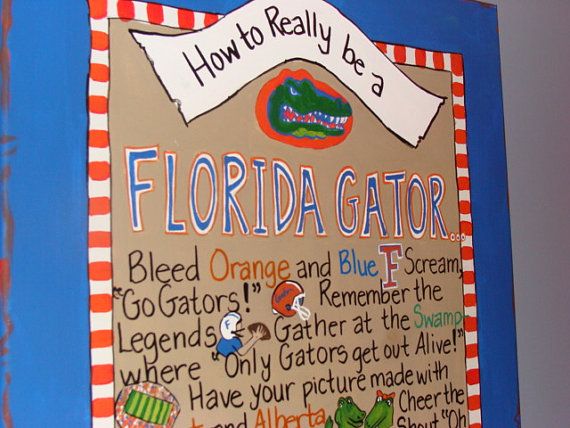 How to Really be a
FLORIDA GATOR...
Bleed Orange and Blue F Scream,
"Go Gators!" Remember the
Legends Gather at the Swamp
where "Only Gators get out Alive!"
Have your picture made with
and Alberta Cheer the
Shout "Oh